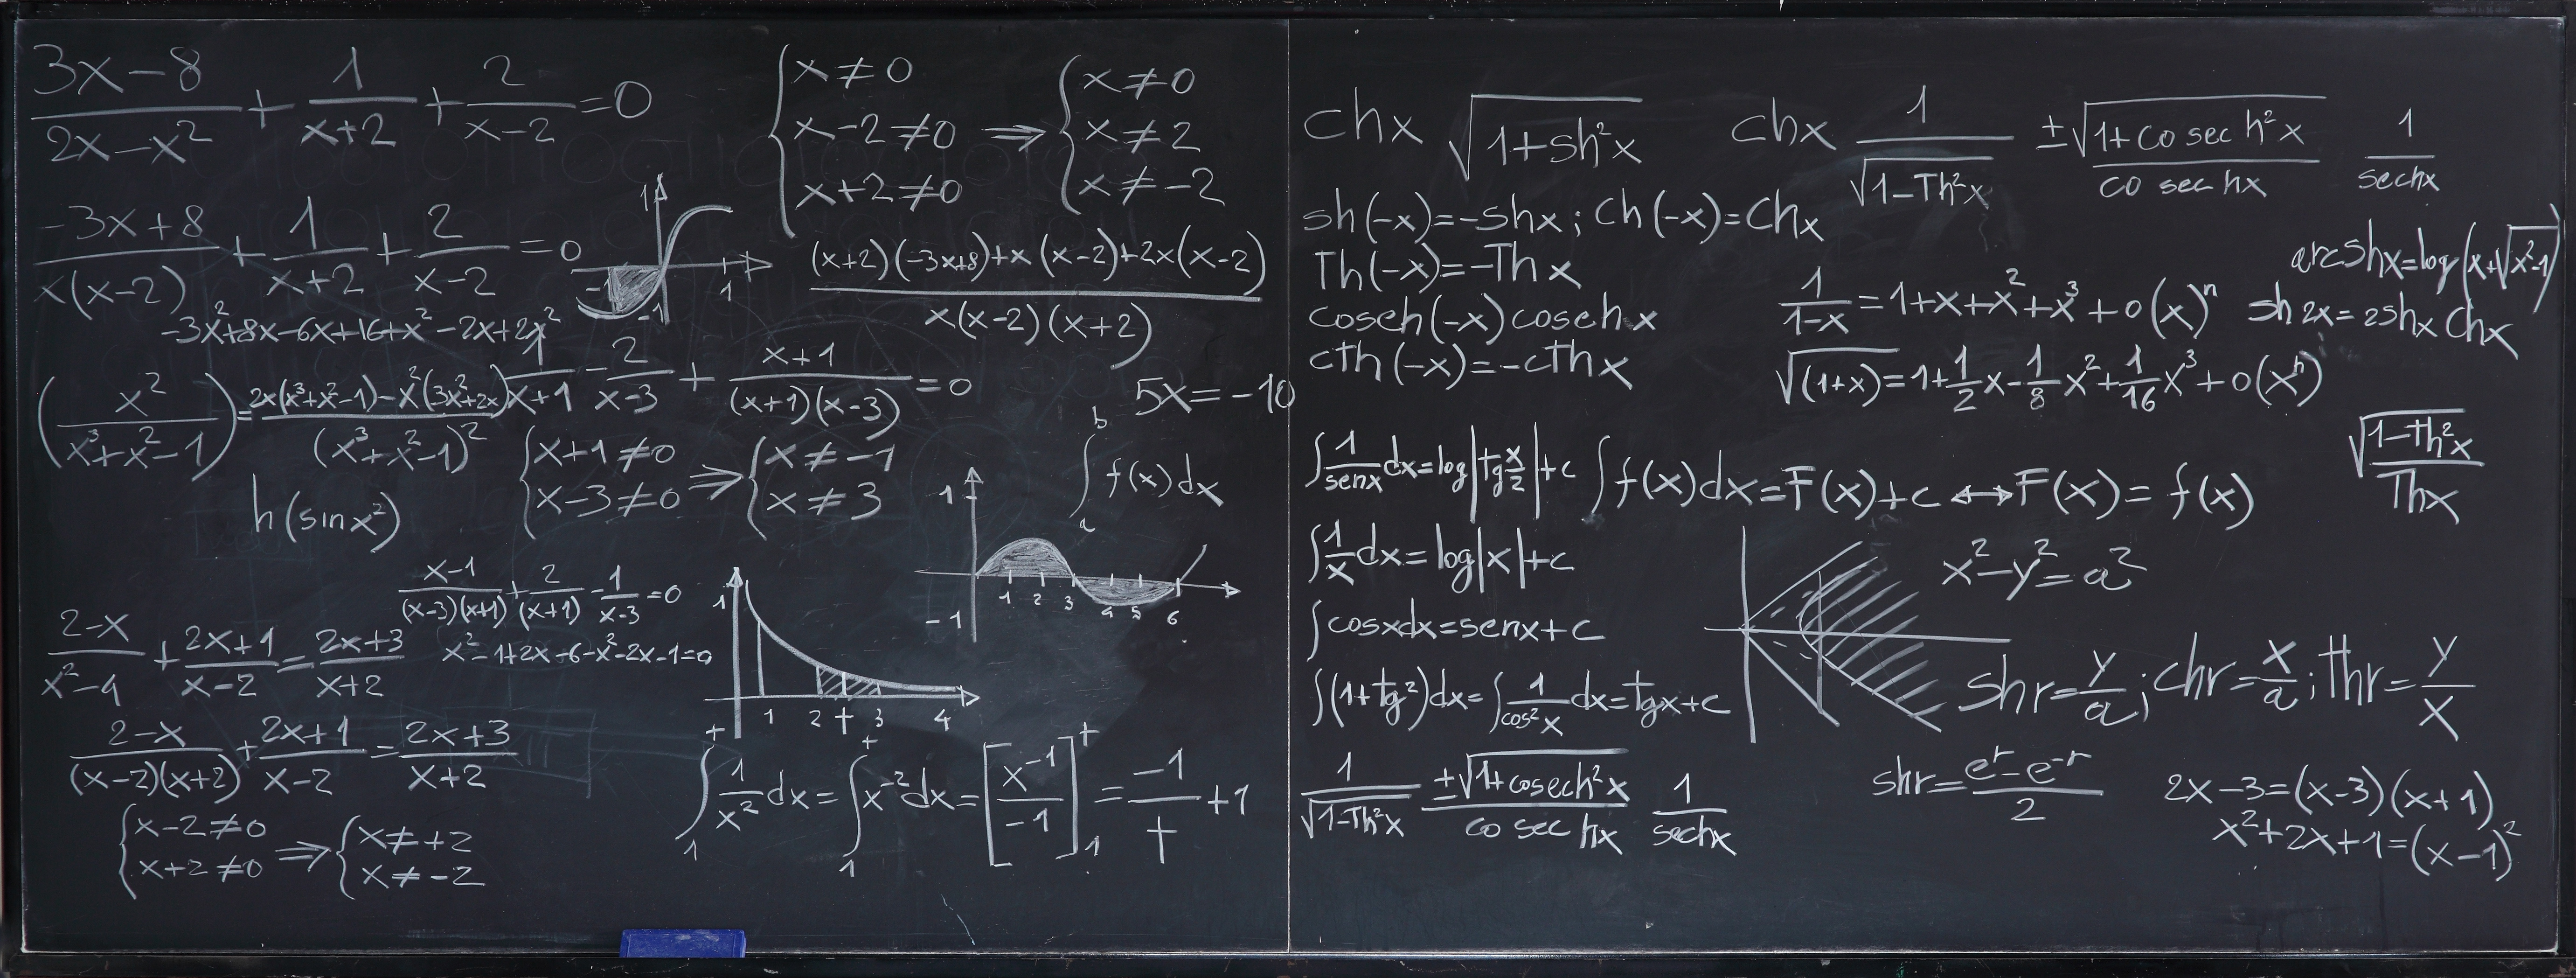 3x-8/2x-x² + 1/x+2 + 2/x-2 = 0
{x≠0
x-2≠0
x+2≠0
⇒ {x≠0
x≠2
x≠-2
-3x+8/x(x-2) + 1/x+2 + 2/x-2 = 0
1
-1
1
-1
(x+2)(-3x+8)+x(x-2)+2x(x-2)/x(x-2)(x+2)
-3x²+8x-6x+16+x²-2x+2x²
(x²/x³+x²-1) = 2x(x³+x²-1)-x²(3x²+2x)/(x³+x²-1)²
1/x+1 - 2/x-3 + x+1/(x+1)(x-3) = 0
5x=-10
{x+1≠0
x-3≠0
⇒ {x≠-1
x≠3
∫ₐᵇ f(x)dx
h(sinx²)
1
-1
1 2 3 4 5 6
x-1/(x-3)(x+1) + 2/(x+1) - 1/x-3 = 0
x²-1+2x-6-x²-2x-1=0
2-x/x²-4 + 2x+1/x-2 = 2x+3/x+2
1
1 2 t 3 4
2-x/(x-2)(x+2) + 2x+1/x-2 = 2x+3/x+2
{x-2≠0
x+2≠0
⇒ {x≠+2
x≠-2
∫₁ᵗ 1/x² dx = ∫₁ᵗ x⁻²dx = [x⁻¹/-1]₁ᵗ = -1/t +1
chx √1+sh²x
chx 1/√1-Th²x ±√1+cosech²x/cosechx 1/sechx
sh(-x)=-shx; ch(-x)=chx
Th(-x)=-Thx
cosech(-x)cosechx
cth(-x)=-cthx
arcshx=log(x+√x²-1)
1/1-x = 1+x+x²+x³+o(x)ⁿ
sh2x=2shx chx
√(1+x)=1+1/2x-1/8x²+1/16x³+o(xⁿ)
√1-Th²x/Thx
∫1/senx dx=log|tg x/2|+c
∫f(x)dx=F(x)+c ↔ F(x)=f(x)
∫1/x dx=log|x|+c
x²-y²=a²
∫cosxdx=senx+c
∫(1+tg²)dx=∫1/cos²x dx=tgx+c
shr=y/a; chr=x/a; thr=y/x
1/√1-Th²x ±√1+cosech²x/cosechx 1/sechx
shr=eʳ-e⁻ʳ/2
2x-3=(x-3)(x+1)
x²+2x+1=(x-1)²